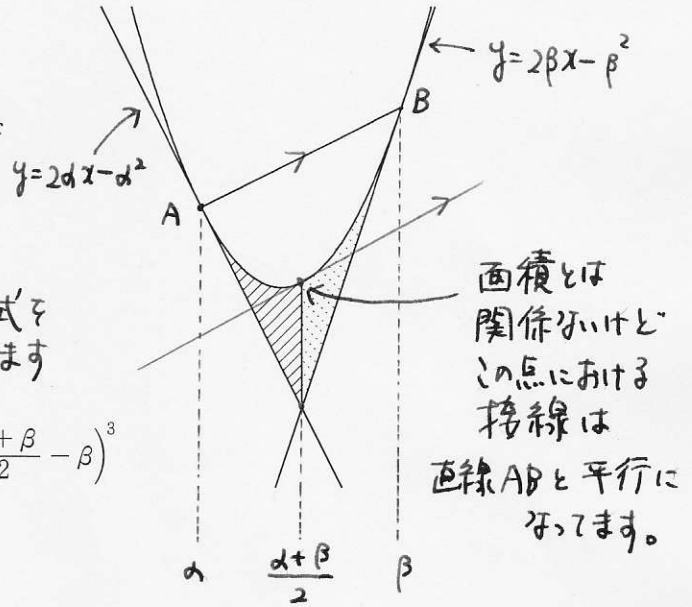 y=2βx-β²
B
y=2αx-α²
A
式を
ます
面積とは
関係ないけど
この点における
接線は
直線ABと平行に
なってます。
+β/2 - β)³
α
α+β/2
β